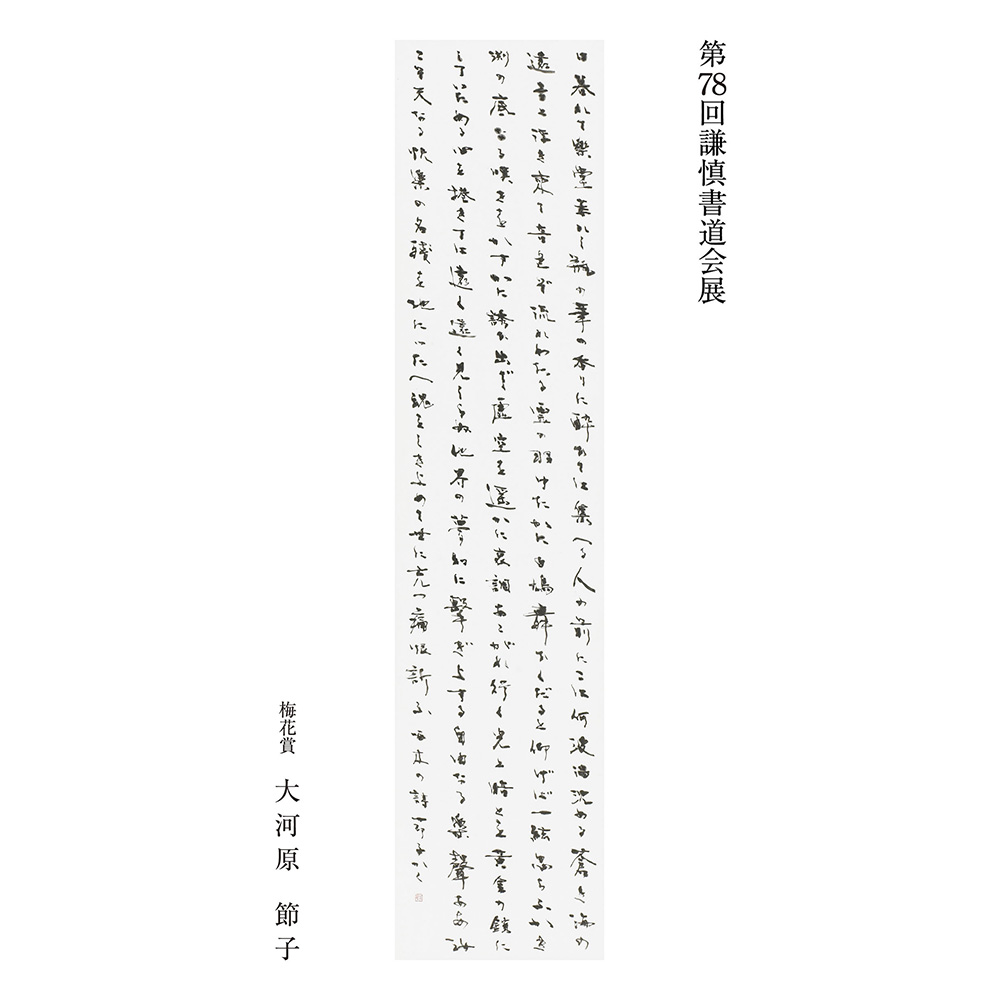 第78回謙慎書道会展
日暮れて樂堂萎れし瓶の華の香りに酔あるは集へる人の前にこは何波渦沈める蒼き海の
遠音と浮き来て音色ぞ流れわたる霊の羽ゆたかに白鳩舞ひくだると仰げば一絃忽ちふかき
淵の底なる嘆きをかすかに誘ひ出で虚空を遥かに哀調あこがれ行く光と暗とを黄金の鎖に
いためる心を捲きては遠く遠く見しらぬ他界の夢幻に繋ぎよする自由なる樂聲ああ
天なる快樂の名残を地につたへ魂をしきよめて世に充つ痛恨訴ふ の詩 節子かく
梅花賞 大河原 節子